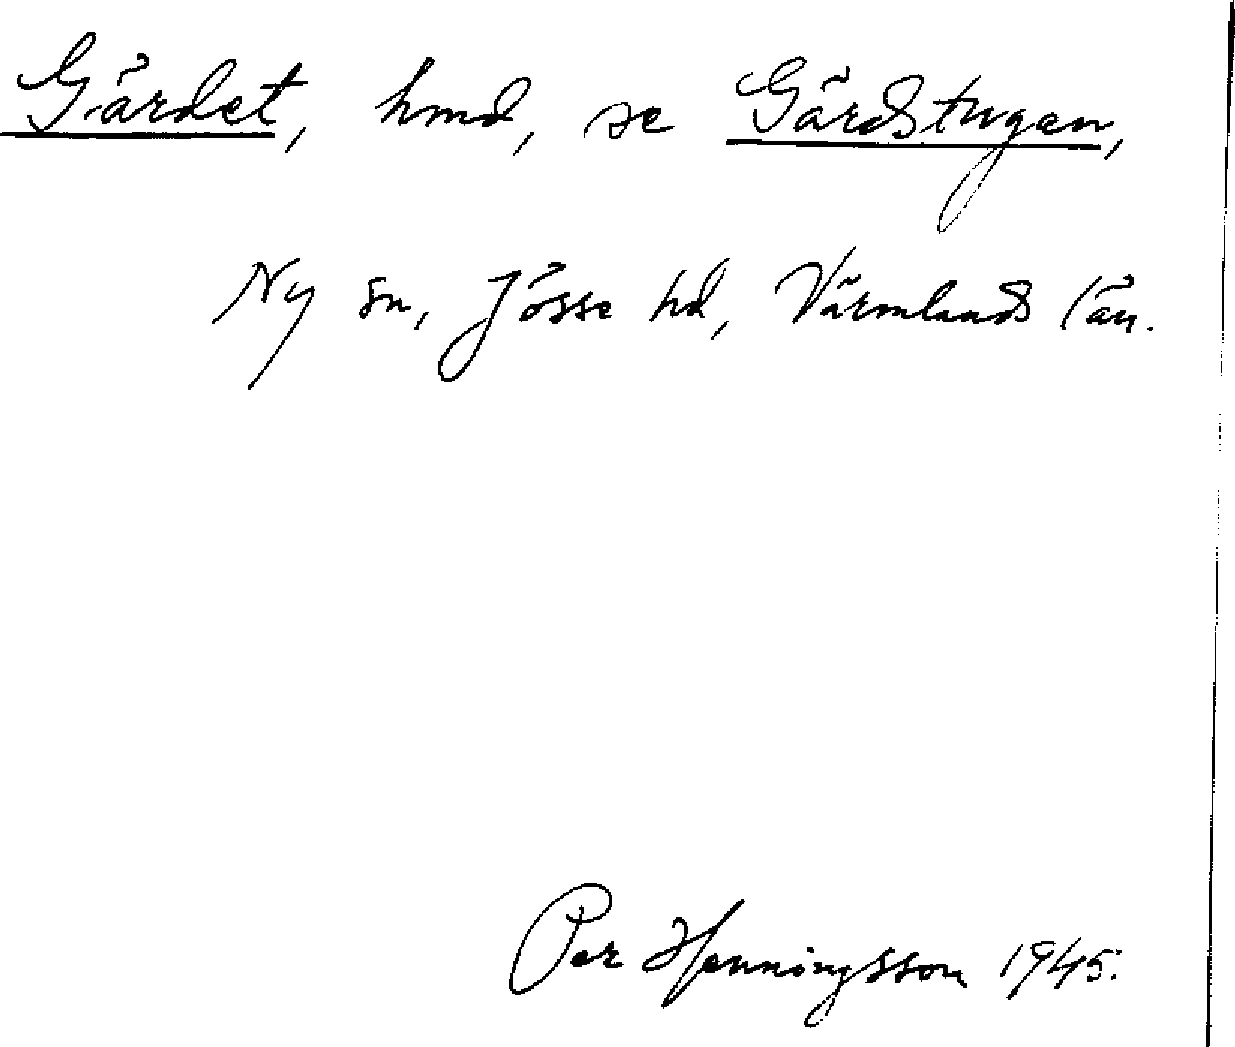 Gärdet, hmd, se Gärdstugan,
Ny sn, Jösse hd, Värmlands län.
Per Henningsson 1945.